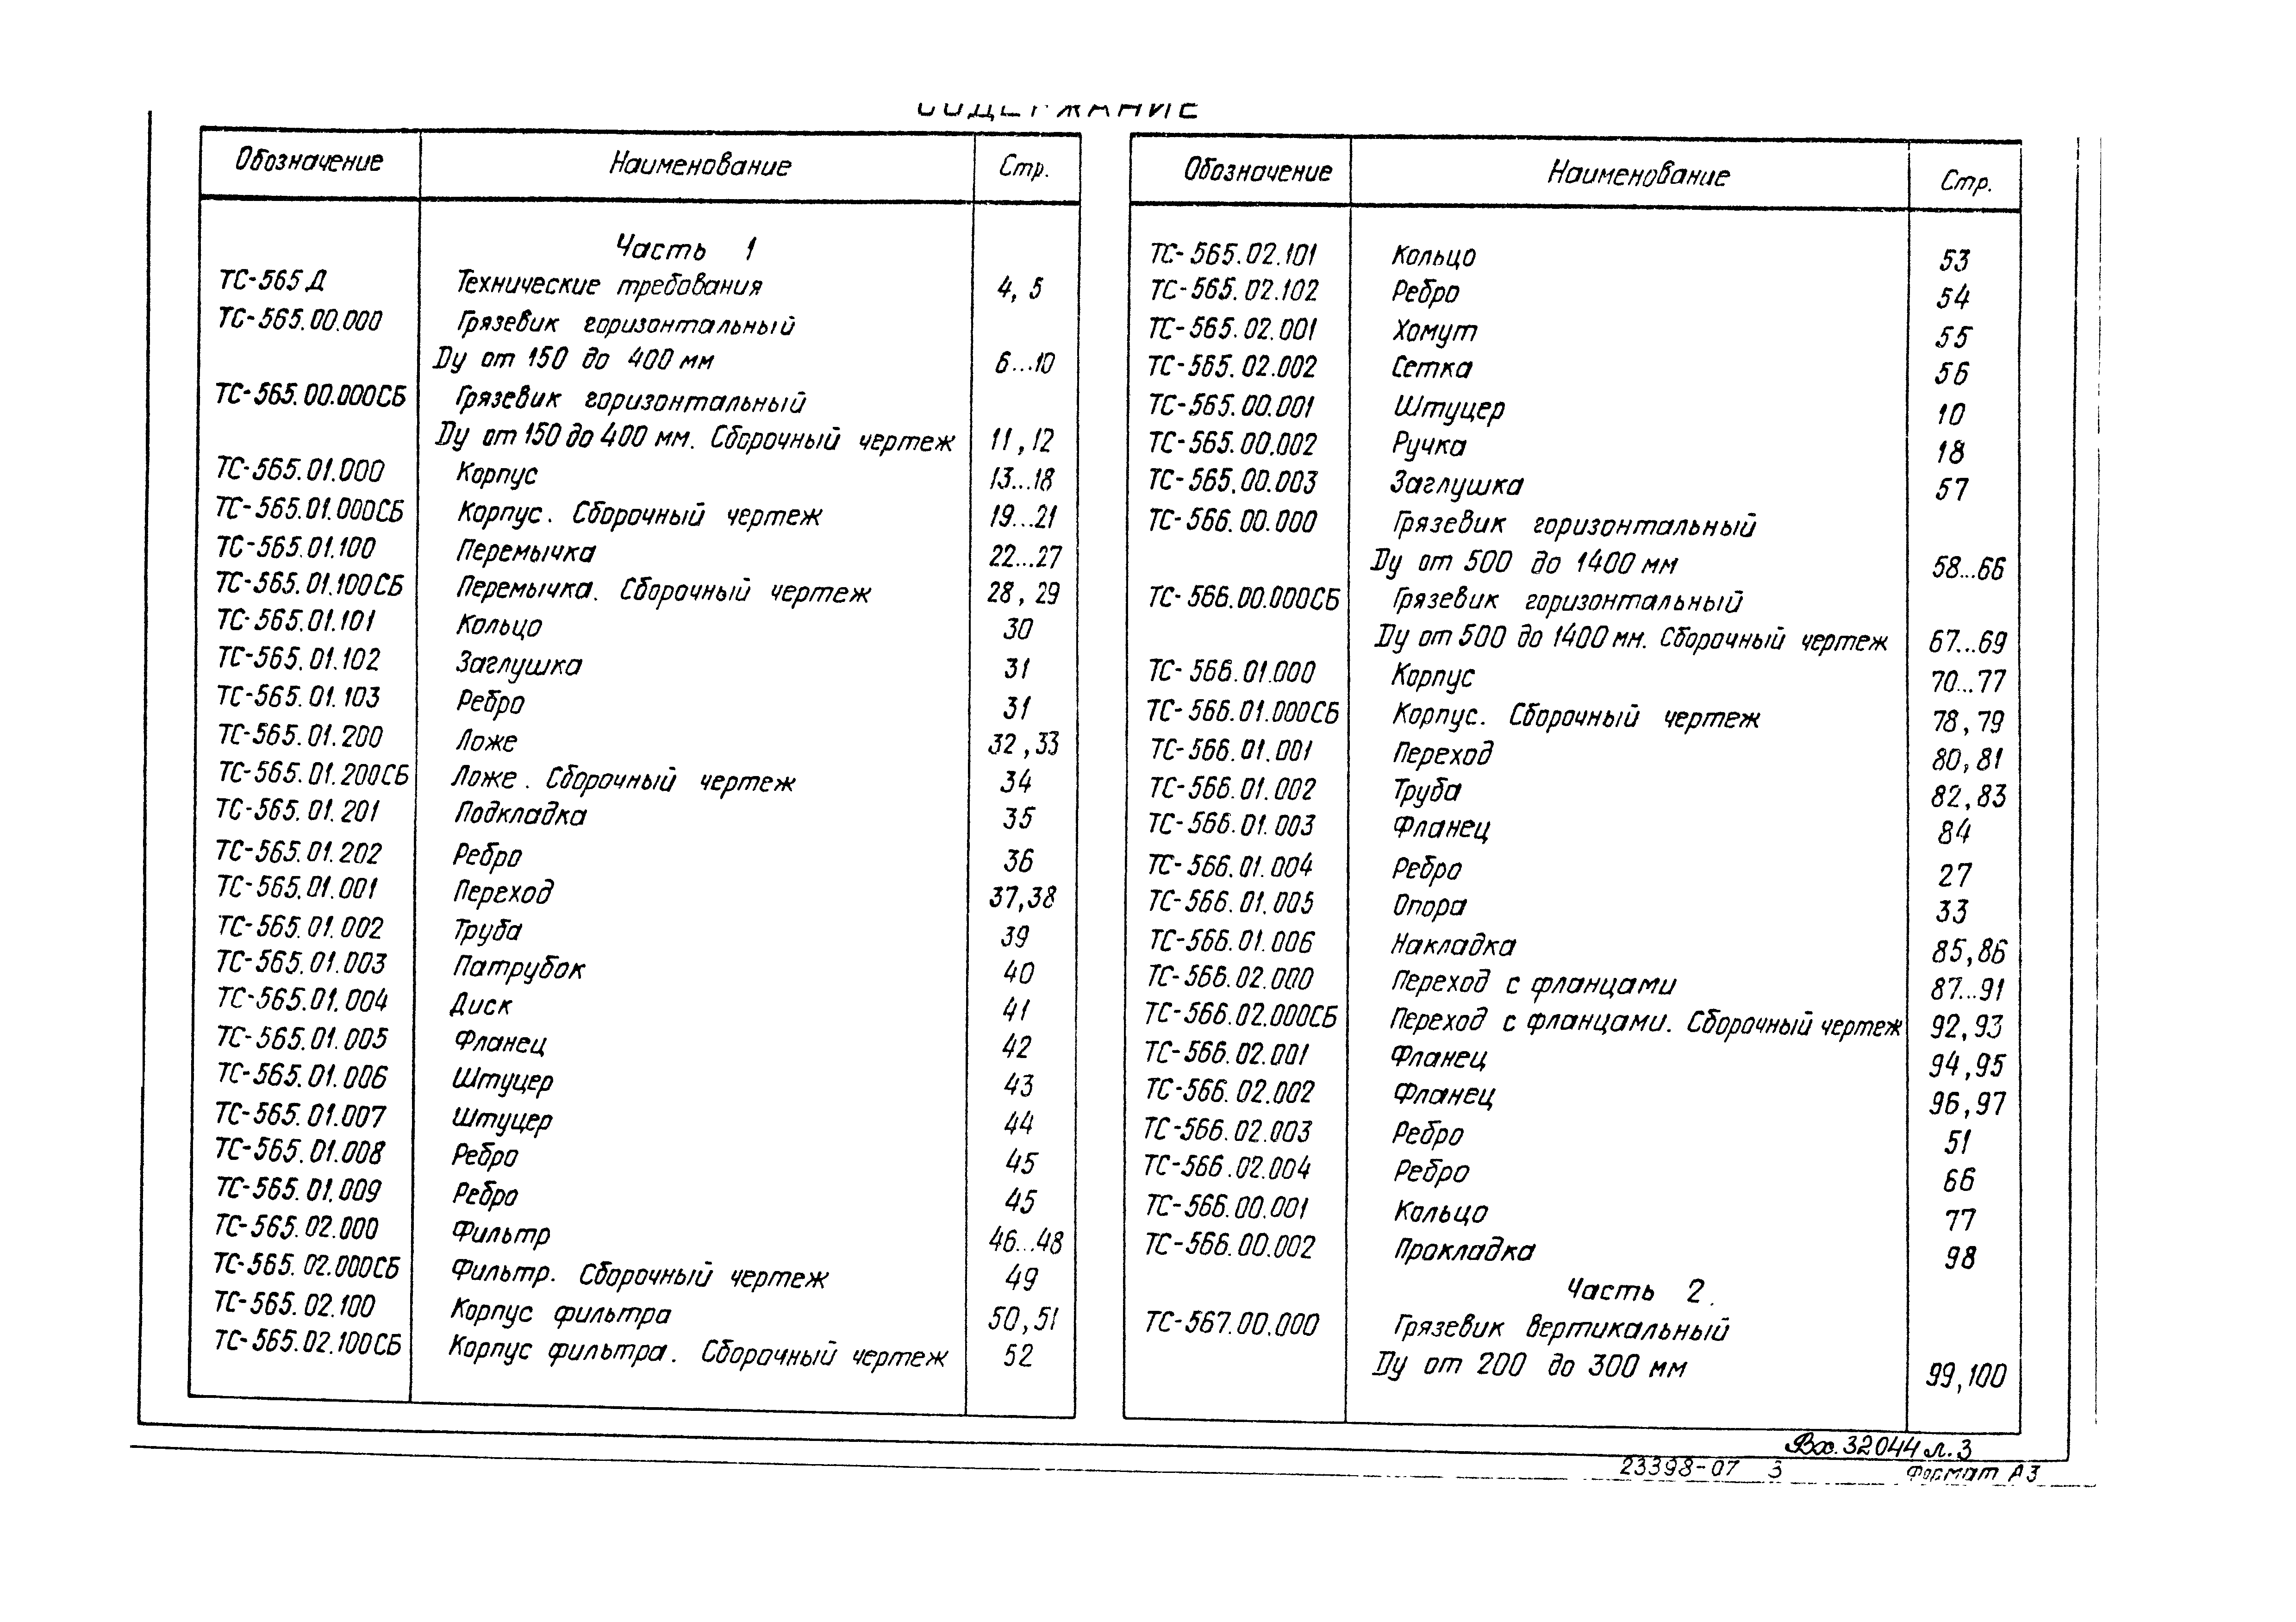 СОДЕРЖАНИЕ
Обозначение Наименование Стр.
Часть 1
ТС-565 Д Технические требования 4, 5
ТС-565.00.000 Грязевик горизонтальный
Dу от 150 до 400 мм 6...10
ТС-565.00.000СБ Грязевик горизонтальный
Dу от 150 до 400 мм. Сборочный чертеж 11, 12
ТС-565.01.000 Корпус 13...18
ТС-565.01.000СБ Корпус. Сборочный чертеж 19...21
ТС-565.01.100 Перемычка 22...27
ТС-565.01.100СБ Перемычка. Сборочный чертеж 28, 29
ТС-565.01.101 Кольцо 30
ТС-565.01.102 Заглушка 31
ТС-565.01.103 Ребро 31
ТС-565.01.200 Ложе 32, 33
ТС-565.01.200СБ Ложе. Сборочный чертеж 34
ТС-565.01.201 Подкладка 35
ТС-565.01.202 Ребро 36
ТС-565.01.001 Переход 37,38
ТС-565.01.002 Труба 39
ТС-565.01.003 Патрубок 40
ТС-565.01.004 Диск 41
ТС-565.01.005 Фланец 42
ТС-565.01.006 Штуцер 43
ТС-565.01.007 Штуцер 44
ТС-565.01.008 Ребро 45
ТС-565.01.009 Ребро 45
ТС-565.02.000 Фильтр 46...48
ТС-565.02.000СБ Фильтр. Сборочный чертеж 49
ТС-565.02.100 Корпус фильтра 50,51
ТС-565.02.100СБ Корпус фильтра. Сборочный чертеж 52
Обозначение Наименование Стр.
ТС-565.02.101 Кольцо 53
ТС-565.02.102 Ребро 54
ТС-565.02.001 Хомут 55
ТС-565.02.002 Сетка 56
ТС-565.00.001 Штуцер 10
ТС-565.00.002 Ручка 18
ТС-565.00.003 Заглушка 57
ТС-566.00.000 Грязевик горизонтальный
Dу от 500 до 1400 мм 58...66
ТС-566.00.000СБ Грязевик горизонтальный
Dу от 500 до 1400 мм. Сборочный чертеж 67...69
ТС-566.01.000 Корпус 70...77
ТС-566.01.000СБ Корпус. Сборочный чертеж 78, 79
ТС-566.01.001 Переход 80, 81
ТС-566.01.002 Труба 82,83
ТС-566.01.003 Фланец 84
ТС-566.01.004 Ребро 27
ТС-566.01.005 Опора 33
ТС-566.01.006 Накладка 85,86
ТС-566.02.000 Переход с фланцами 87...91
ТС-566.02.000СБ Переход с фланцами. Сборочный чертеж 92,93
ТС-566.02.001 Фланец 94,95
ТС-566.02.002 Фланец 96,97
ТС-566.02.003 Ребро 51
ТС-566.02.004 Ребро 66
ТС-566.00.001 Кольцо 77
ТС-566.00.002 Прокладка 98
Часть 2.
ТС-567.00.000 Грязевик вертикальный
Dу от 200 до 300 мм 99,100
Вх. 32044 л. 3
23398-07 3 Формат А3